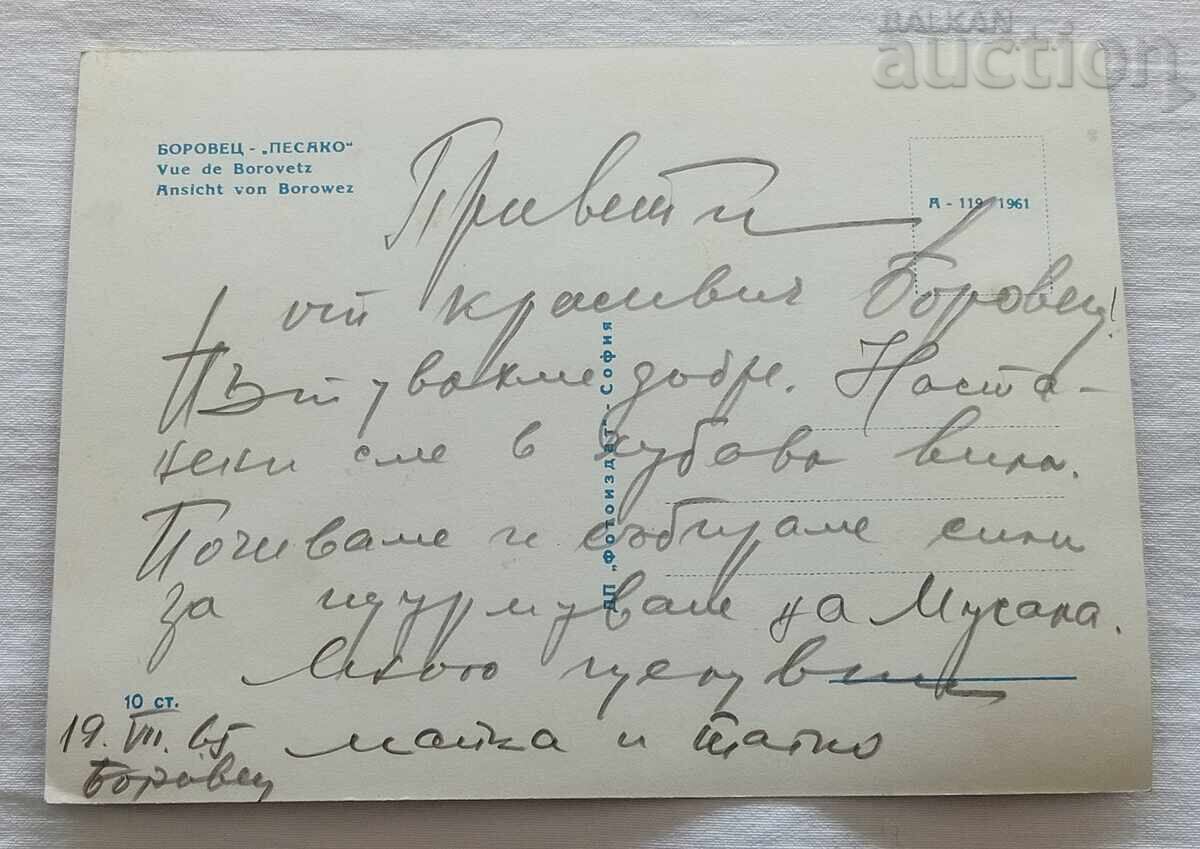 BALKAN
auction
БОРОВЕЦ - „ПЕСЯКО"
Vue de Borovetz
Ansicht von Borowez
А - 119 1961
Привети
от красивия Боровец!
Пътувахме добре. Наста-
нени сме в хубава вила.
Почиваме и събираме сили
за щурмуване на Мусала.
Много целувки
майка и татко
ДП „Фотоиздат" - София
10 ст.
19. VII. 65
Боровец